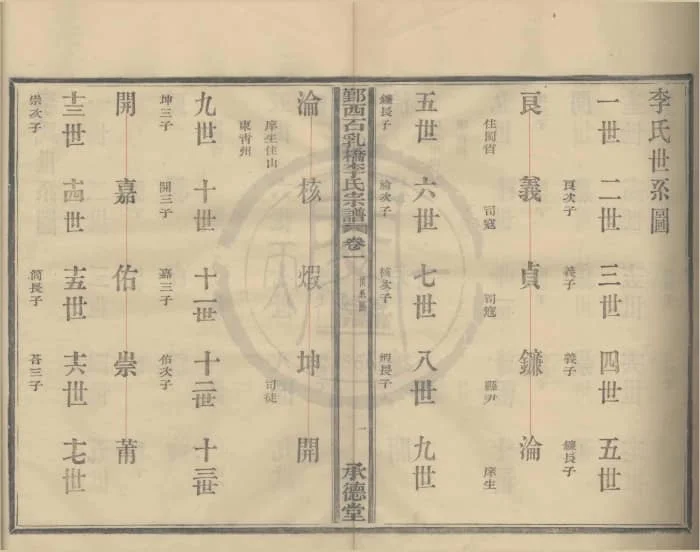 李氏世系圖
一世 二世 三世 四世 五世
良次子 義子 義子 鐮長子
良 義 貞 鐮 淪
住閩省 司寇 司寇 縣尹 庠生
五世 六世 七世 八世 九世
鐮長子 淪次子 核次子 煆長子
鄞西石乳橋李氏宗譜 卷一 世系圖 一 承德堂
淪 核 煆 坤 開
庠生住山 司徒
東青州
九世 十世 十一世 十二世 十三世
坤三子 開三子 嘉三子 佑次子
開 嘉 佑 崇 莆
十三世 十四世 十五世 十六世 十七世
崇次子 簡長子 荅三子